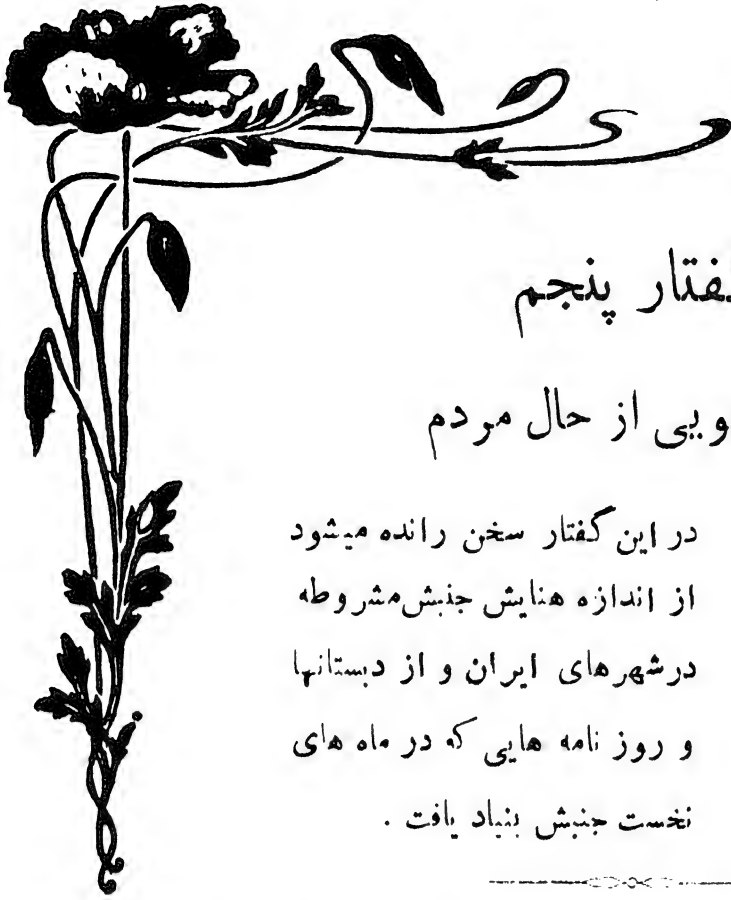 گفتار پنجم
ویی از حال مردم
در این گفتار سخن رانده میشود
از اندازه هنایش جنبش مشروطه
در شهرهای ایران و از دبستانها
و روز نامه هایی که در ماه های
نخست جنبش بنیاد یافت .